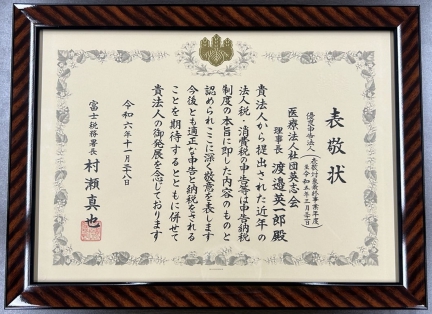 表敬状
優良申告法人
表敬対象最終事業年度
医療法人社団英志会
理事長 渡邉英一郎殿
貴法人から提出された近年の
法人税・消費税の申告等は申告納税
制度の本旨に即した内容のものと
認められここに深く敬意を表します
今後とも適正な申告と納税をされる
ことを期待するとともに併せて
貴法人の御発展を念じております
令和六年十一月二十八日
富士税務署長 村瀬真也